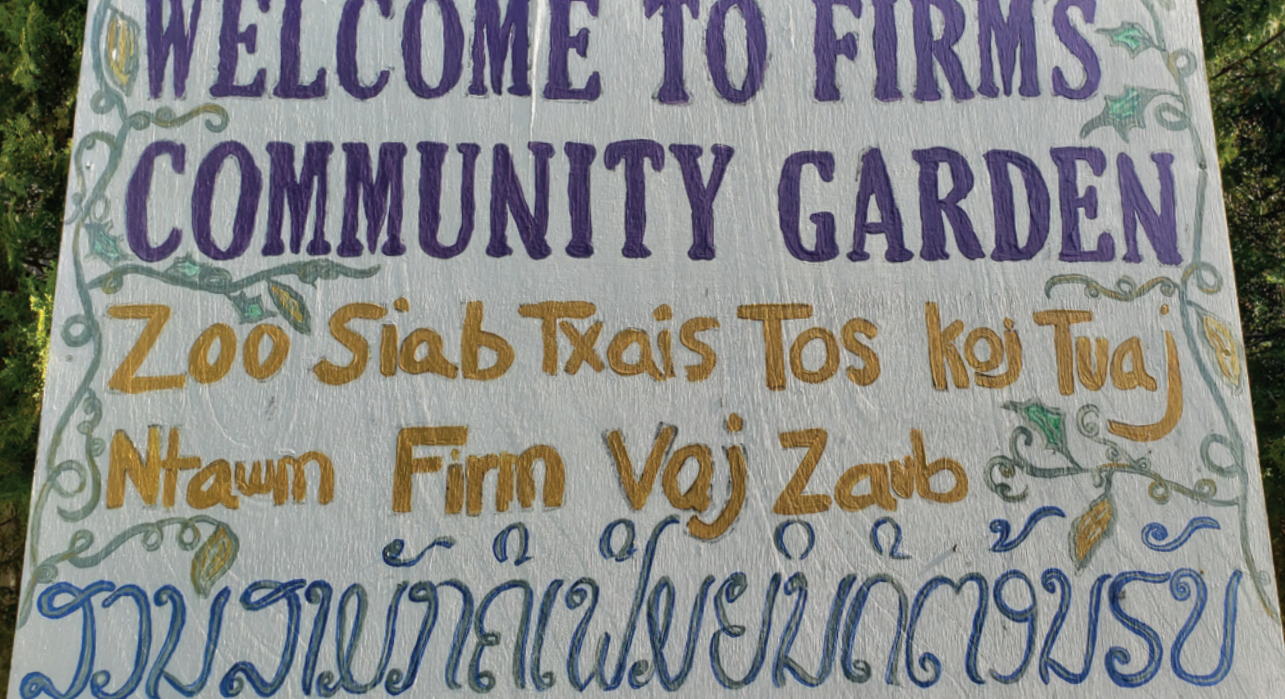 WELCOME TO FIRMS
COMMUNITY GARDEN
Zoo Siab Txais Tos Koj Tuaj
Ntawm Firm Vaj Zaub
ສວນສາມັກຄີເຟີມຍິນດີຕ້ອນຮັບ